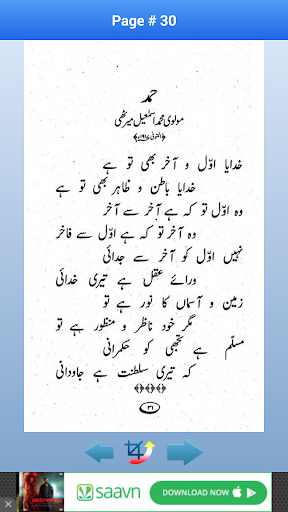 Page # 30
حمد
مولوی محمد اسمٰعیل میرٹھی
خدایا اوّل و آخر بھی تو ہے
خدایا باطن و ظاہر بھی تو ہے
وہ اوّل تو کہ ہے آخر سے آخر
وہ آخر تو کہ ہے اوّل سے فاخر
نہیں اوّل کو آخر سے جدائی
ورائے عقل ہے تیری خدائی
زمین و آسماں کا نور ہے تو
مگر خود ناظر و منظور ہے تو
مسلّم ہے تجھی کو حکمرانی
کہ تیری سلطنت ہے جاودانی
۳۱
saavn
DOWNLOAD NOW